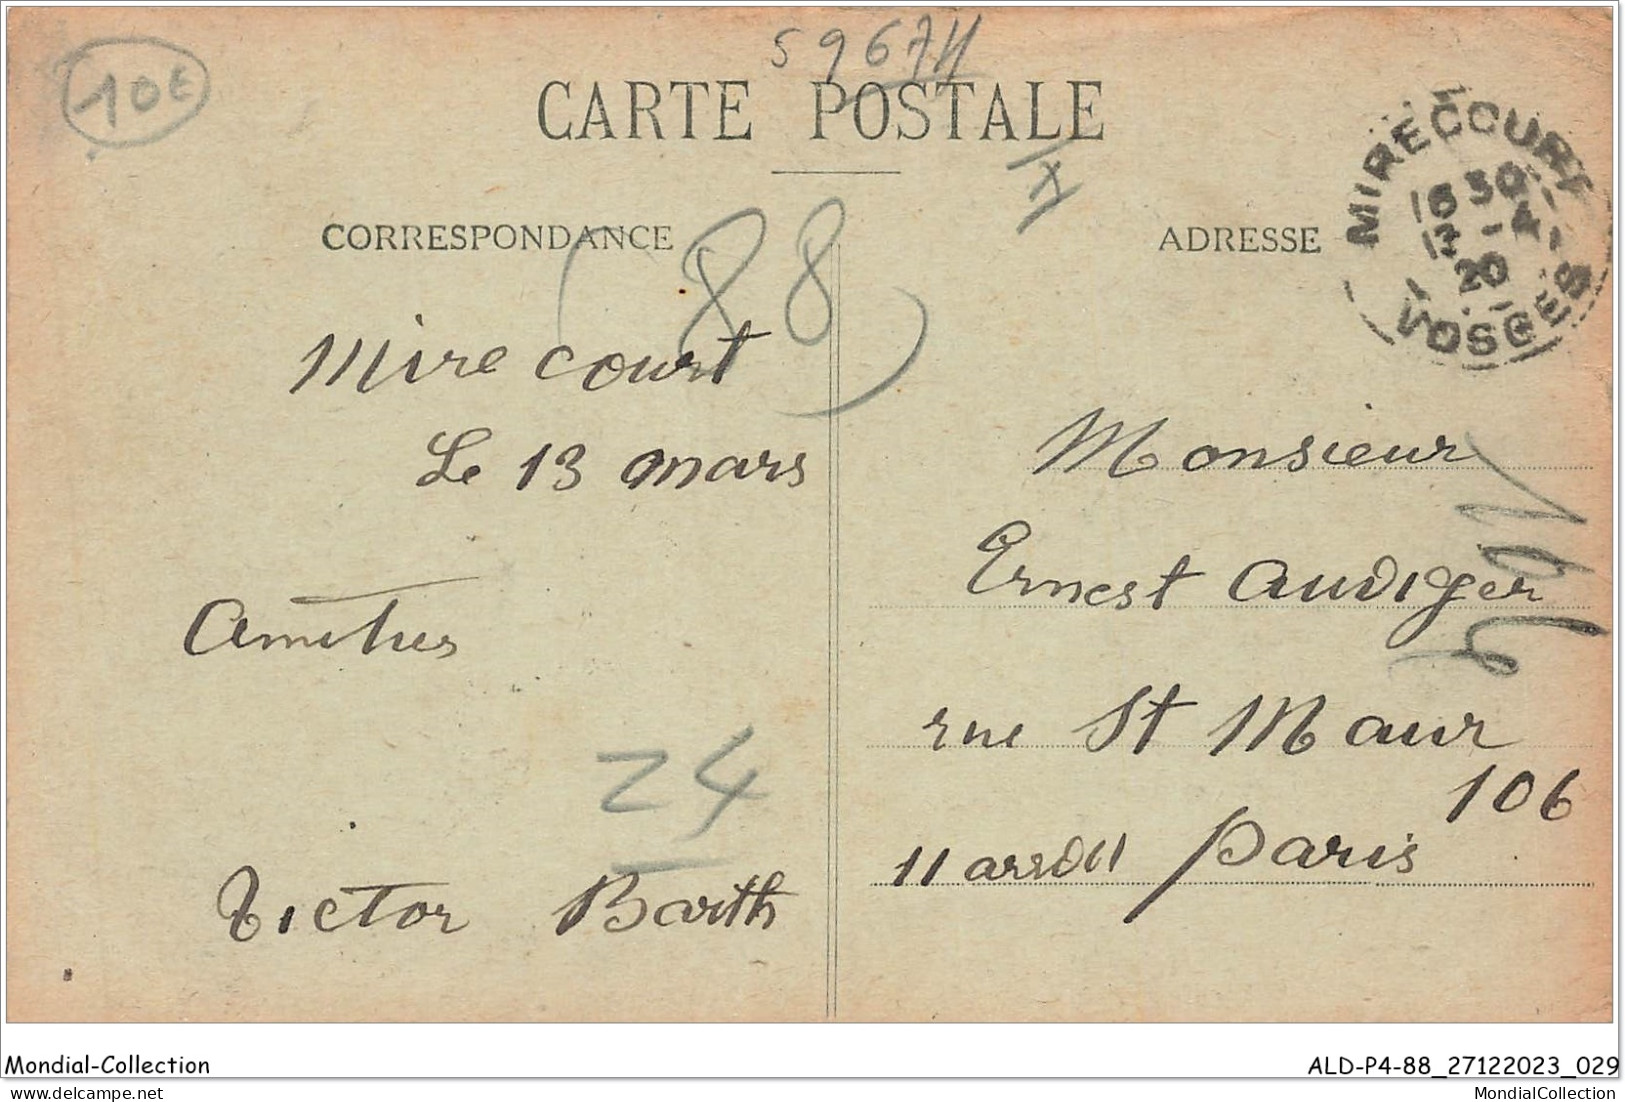 10€
59674
CARTE POSTALE
CORRESPONDANCE
ADRESSE
MIRECOURT
VOSGES
20
(88)
Mirecourt
Le 13 mars
Amitiés
24
Victor Barth
Monsieur
Ernest Audiger
rue St Maur
106
11 arron Paris
Mondial-Collection
ALD-P4-88_27122023_029
MondialCollection